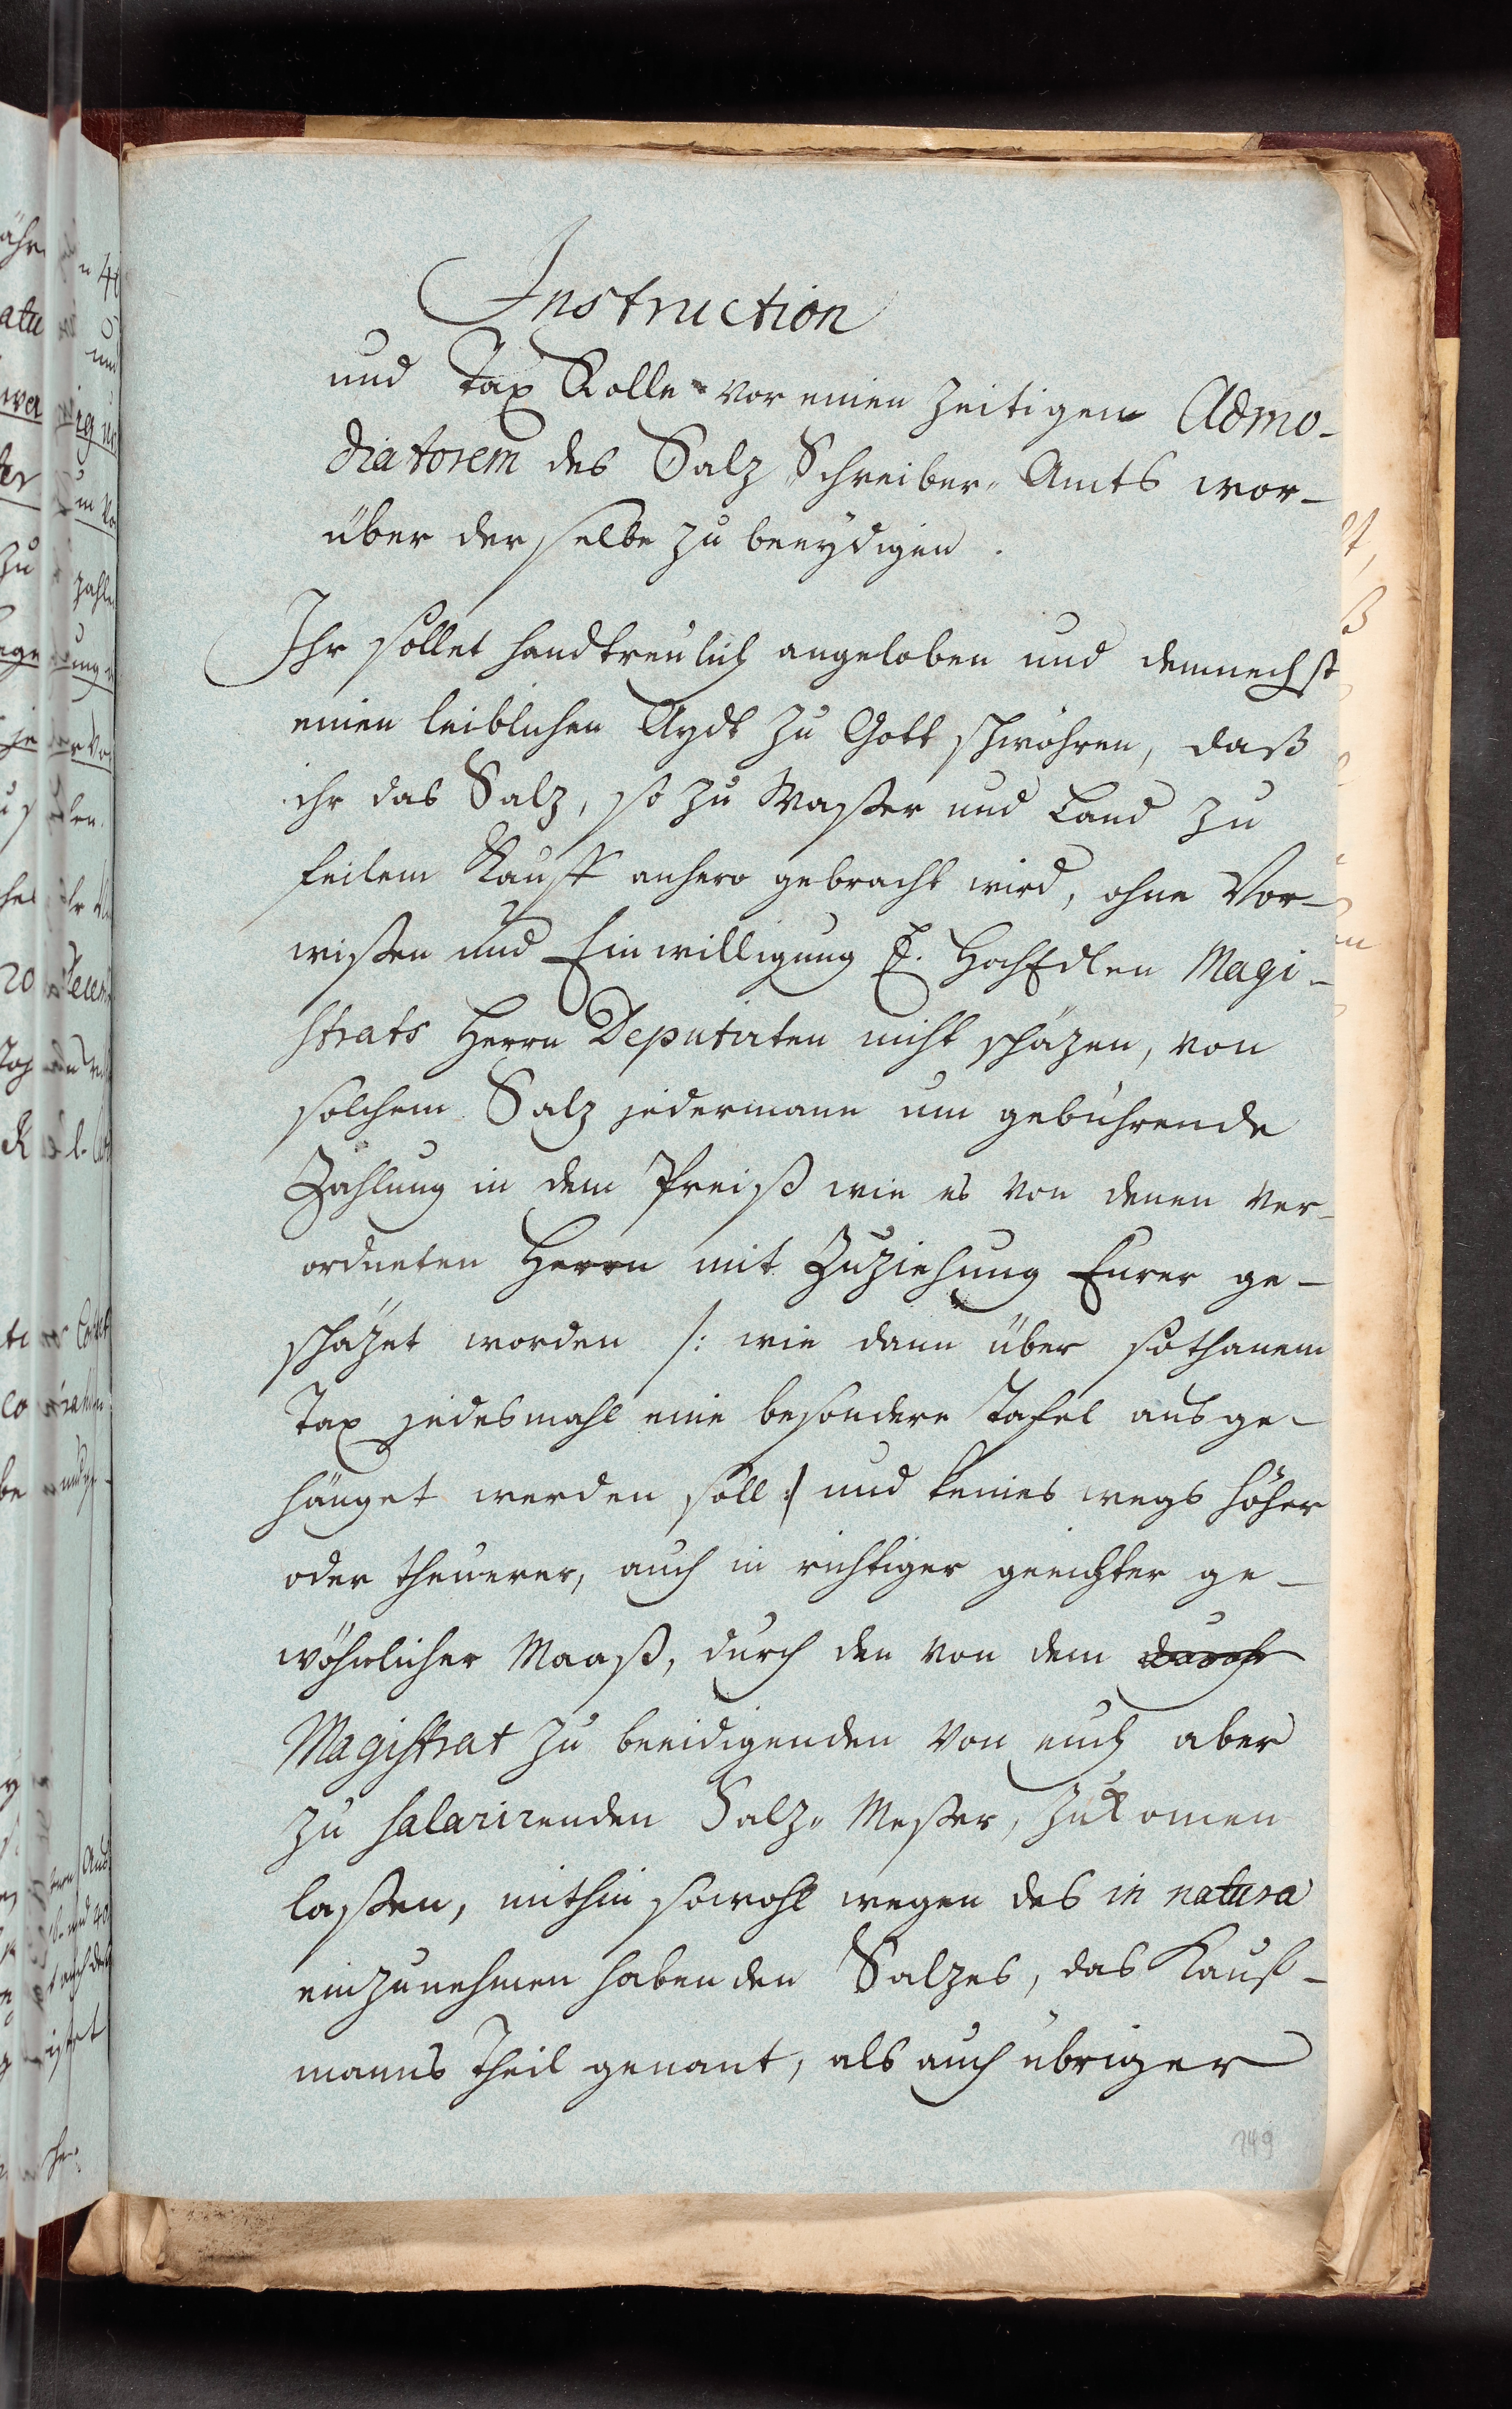 Instruction
und Tax Rolle vor einen zeitigen Admo-
diatorem des Salz Schreiber„ Amts wor-
über derselbe zu beeydigen.
Ihr sollet handtreulich angeloben und demnechst
einen leiblichen Aydt zu Gott schwöhren, daß
ihr das Salz, so zu Waßer und Land zu
feilem Kauff anhero gebracht wird, ohne Vor-
wißen und Einwilligung E. HochEdlen Magi-
strats Herrn Deputirten nicht schäzen, von
solchem Salz jedermann um gebührende
Zahlung in dem Preiß wie es von denen ver-
ordneten Herrn mit Zuziehung Eurer ge-
schäzet worden /: wie dann über sothanem
Tax jedesmahl eine besondere Tafel ausge-
hänget werden soll :/ und keines wegs höher
oder theuerer, auch in richtiger geeichter ge-
wöhnlicher Maaß, durch den von dem durch
Magistrat zu beeidigenden von euch aber
zu salarirenden Salz„ Meßer, zukomen
laßen, mithin sowohl wegen des in natura
einzunehmen habenden Salzes, das Kauf-
manns Theil genant, als auch übriger
149